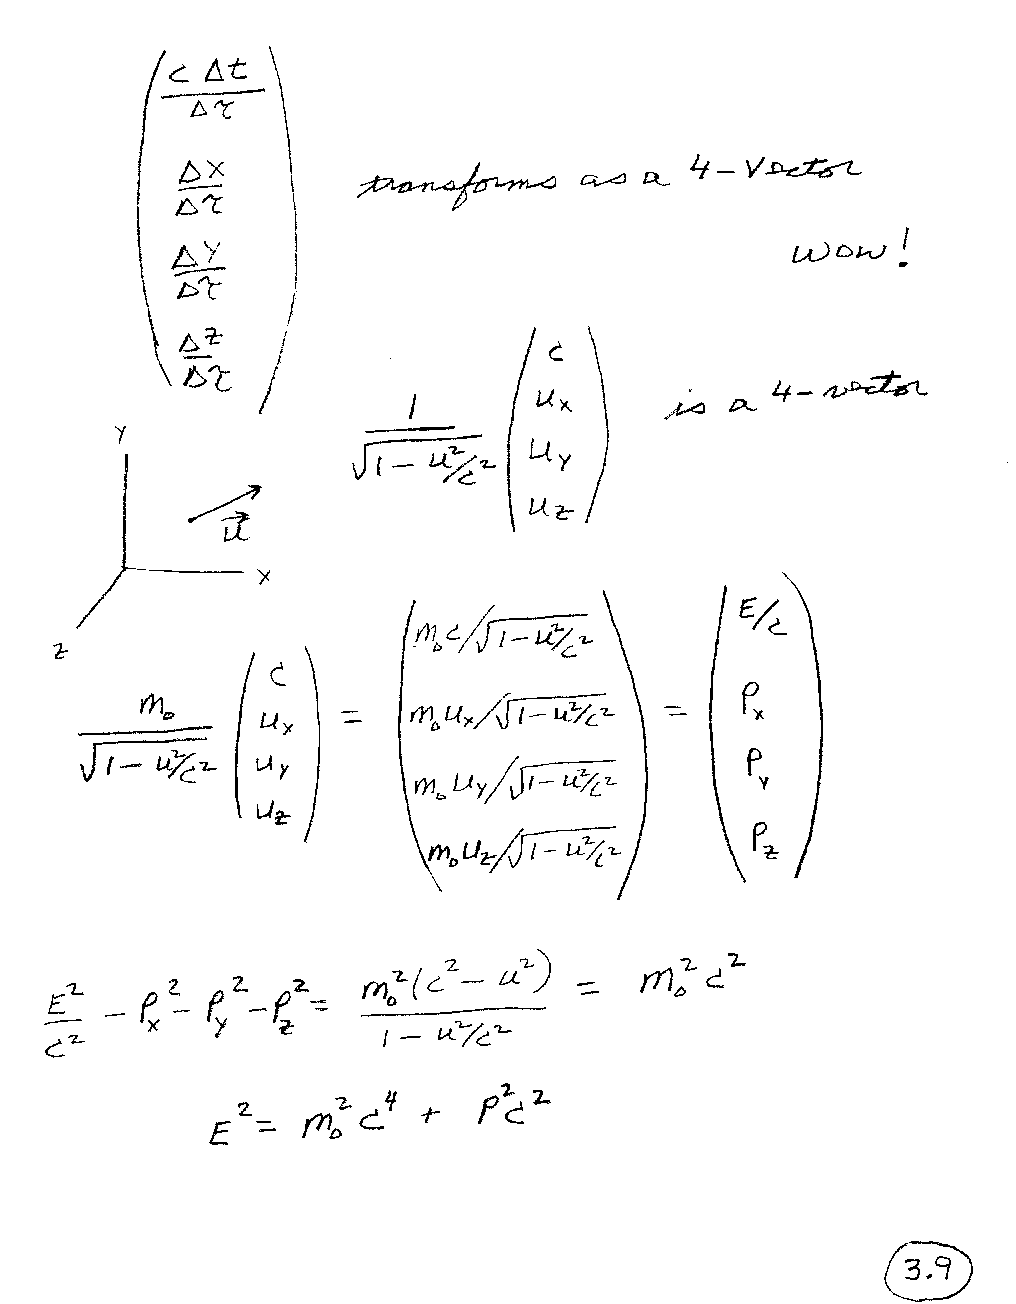 ( c Δt / Δτ
Δx / Δτ
Δy / Δτ
Δz / Δτ ) transforms as a 4-Vector
WOW!
1 / √(1 − u²/c²) ( c
u_x
u_y
u_z ) is a 4-vector
Y
u⃗
X
Z
m₀ / √(1 − u²/c²) ( c
u_x
u_y
u_z ) = ( m₀c/√(1 − u²/c²)
m₀u_x/√(1 − u²/c²)
m₀u_y/√(1 − u²/c²)
m₀u_z/√(1 − u²/c²) ) = ( E/c
P_x
P_y
P_z )
E²/c² − P_x² − P_y² − P_z² = m₀²(c² − u²) / (1 − u²/c²) = m₀²c²
E² = m₀²c⁴ + P²c²
3.9